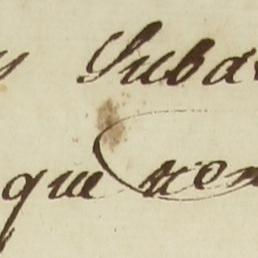 y Subd
que ten